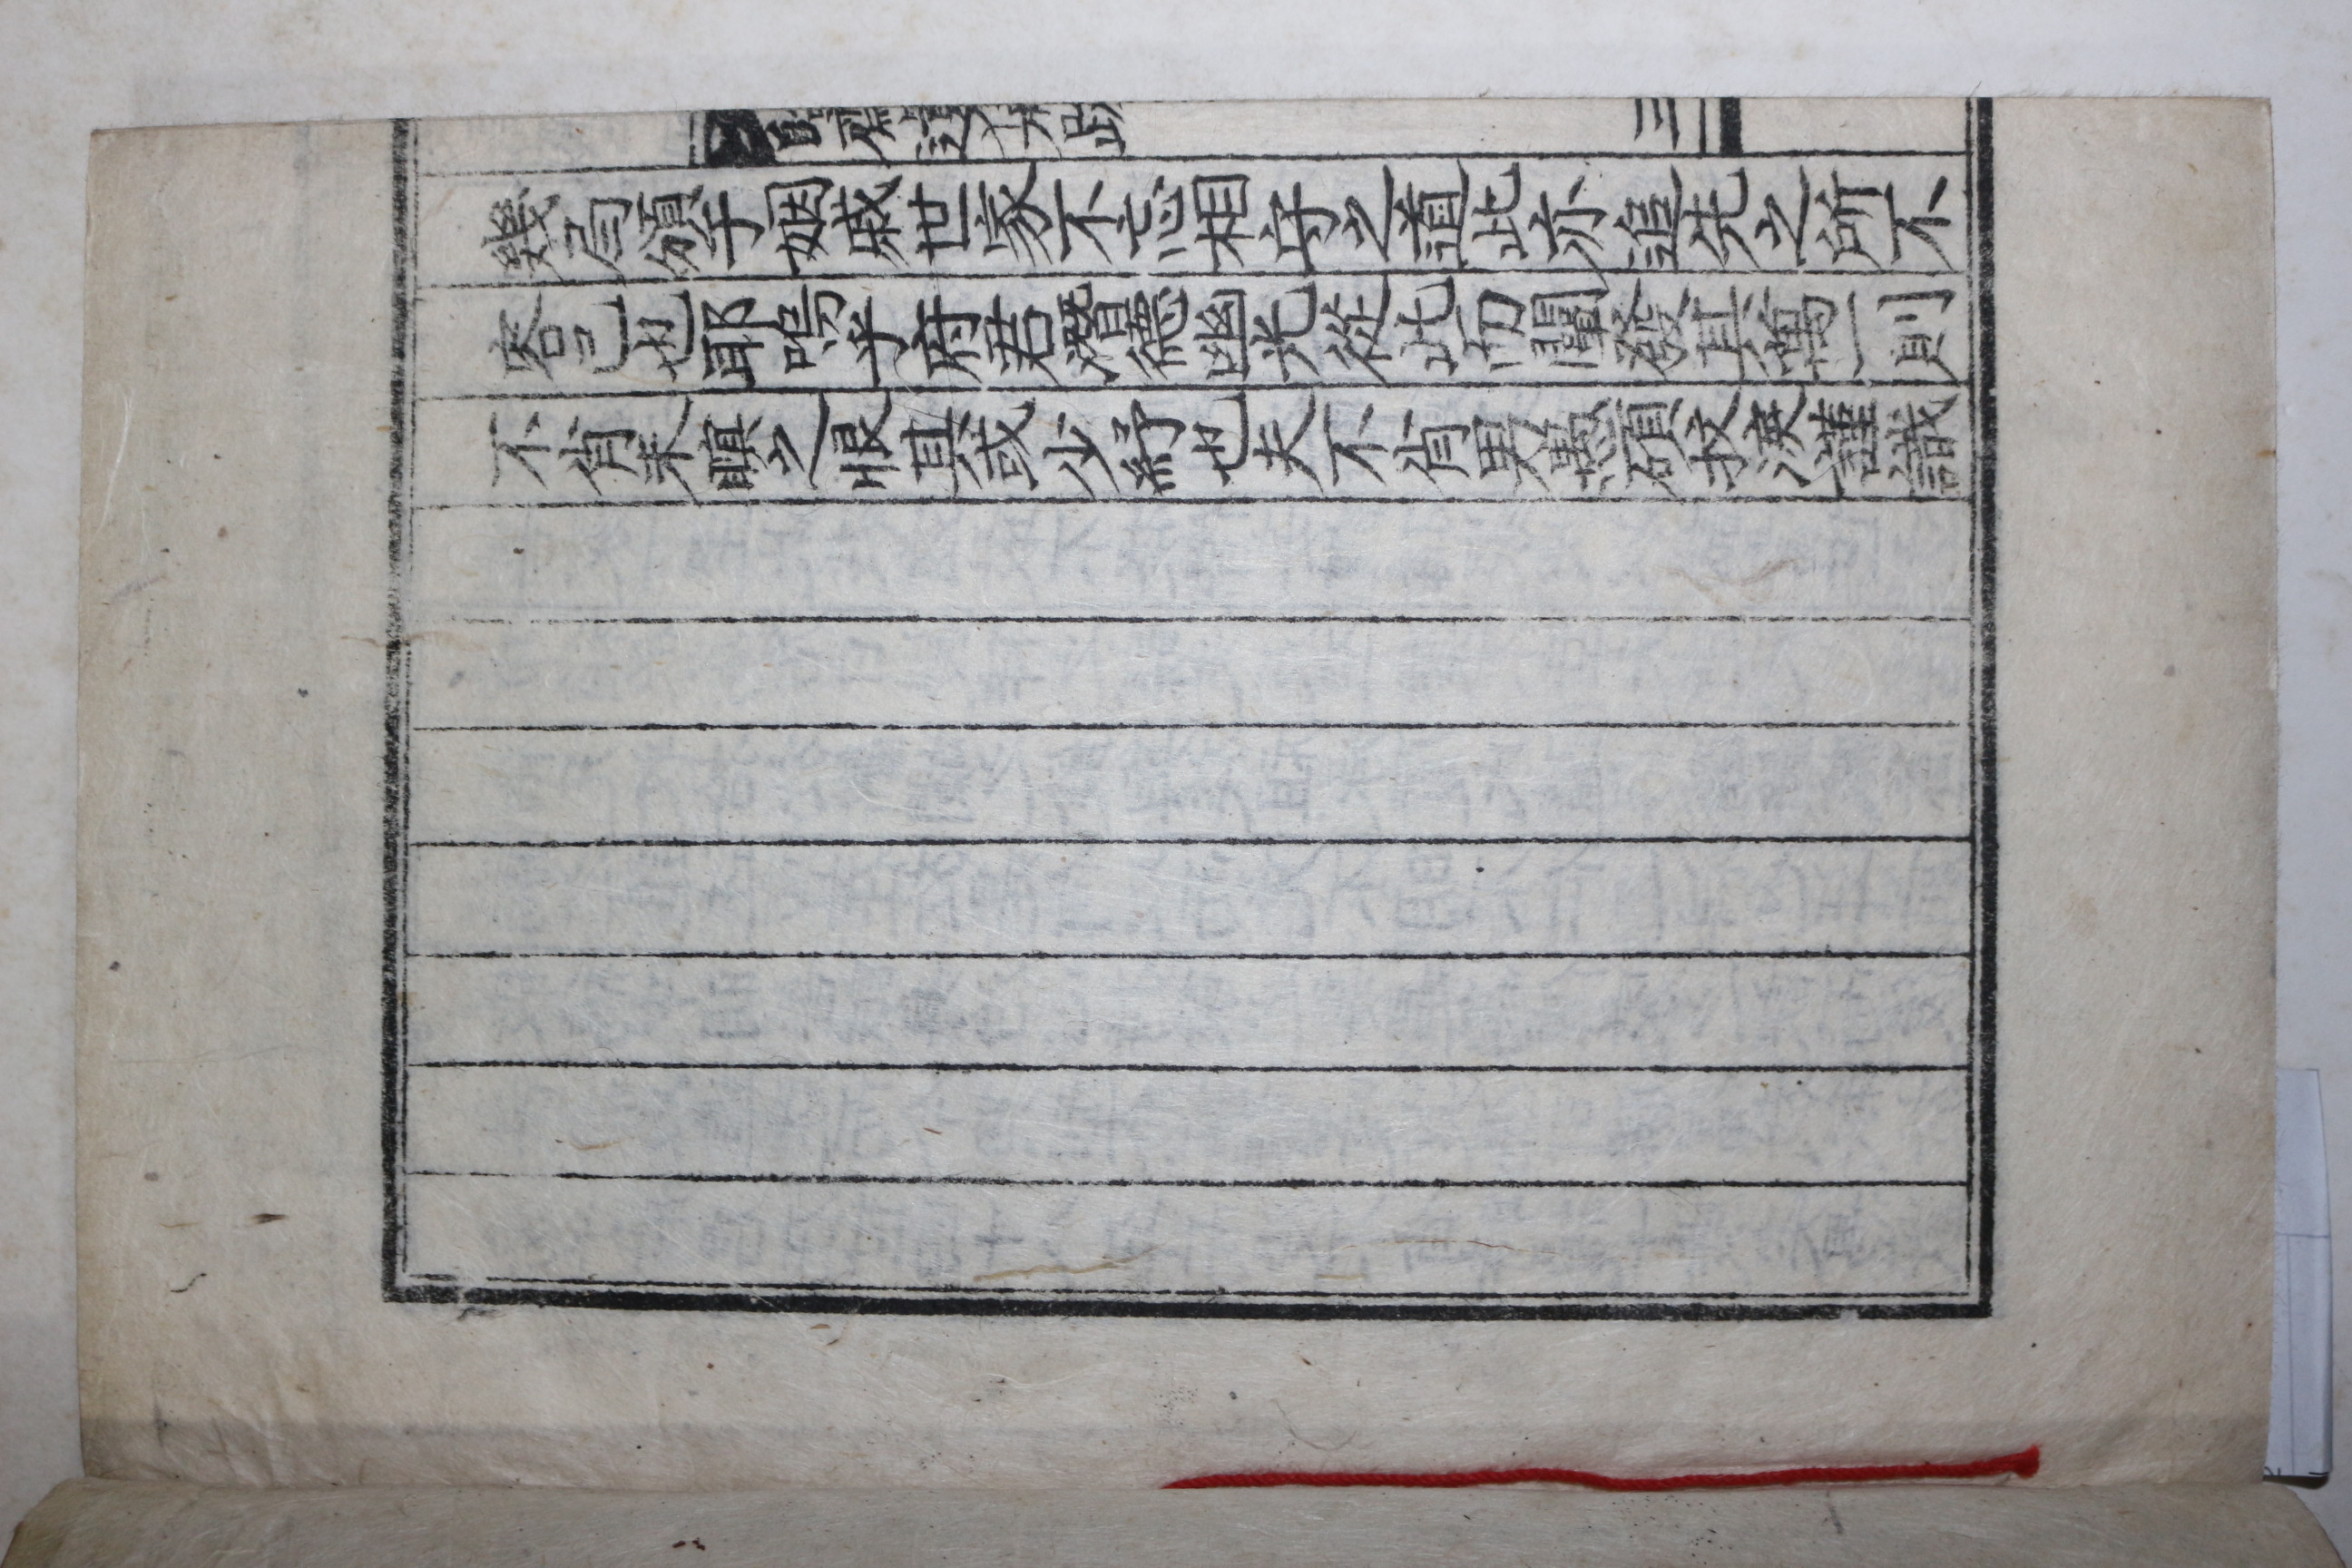 齋遺稿跋
三
幾局頒于姻戚世家不忘相守之道此亦追先之所不
容已也耶嗚乎府君潛德幽光從此而闡發其萬一則
不肖未瞑之恨其或少紓也夫不肖男愚碩抆淚謹識